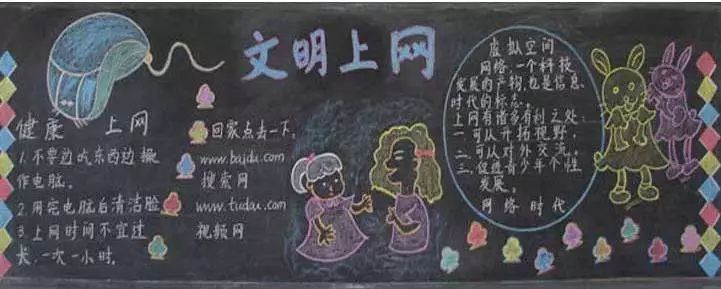 文明上网
健康 上网
1.不要边吃东西边操
作电脑。
2.用完电脑后清洁脸
3.上网时间不宜过
长,一次一小时。
回家点去一下。
www.baidu.com
搜索网
www.tudou.com
视频网
虚拟空间
网络,一个科技
发展的产物,也是信息
时代的标志。
上网有诸多有利之处:
一.可以开扬视野,
二.可以对外交流。
三.促进青少年个性
发展。
网络时代